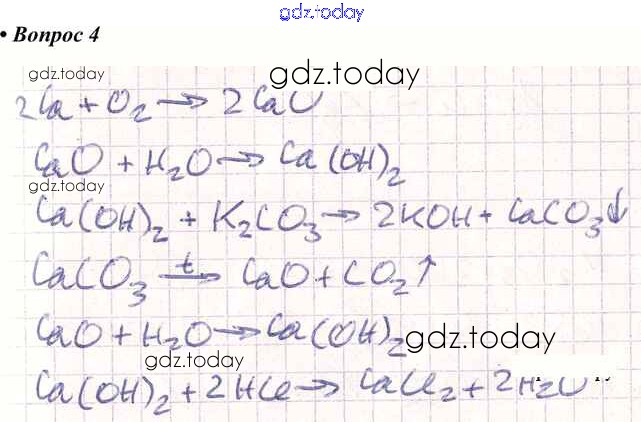 gdz.today
• Вопрос 4
gdz.today gdz.today
2Ca + O₂ → 2CaO
CaO + H₂O → Ca(OH)₂
gdz.today
Ca(OH)₂ + K₂CO₃ → 2KOH + CaCO₃↓
CaCO₃ t→ CaO + CO₂↑
CaO + H₂O → Ca(OH)₂ gdz.today
gdz.today
Ca(OH)₂ + 2HCl → CaCl₂ + 2H₂O